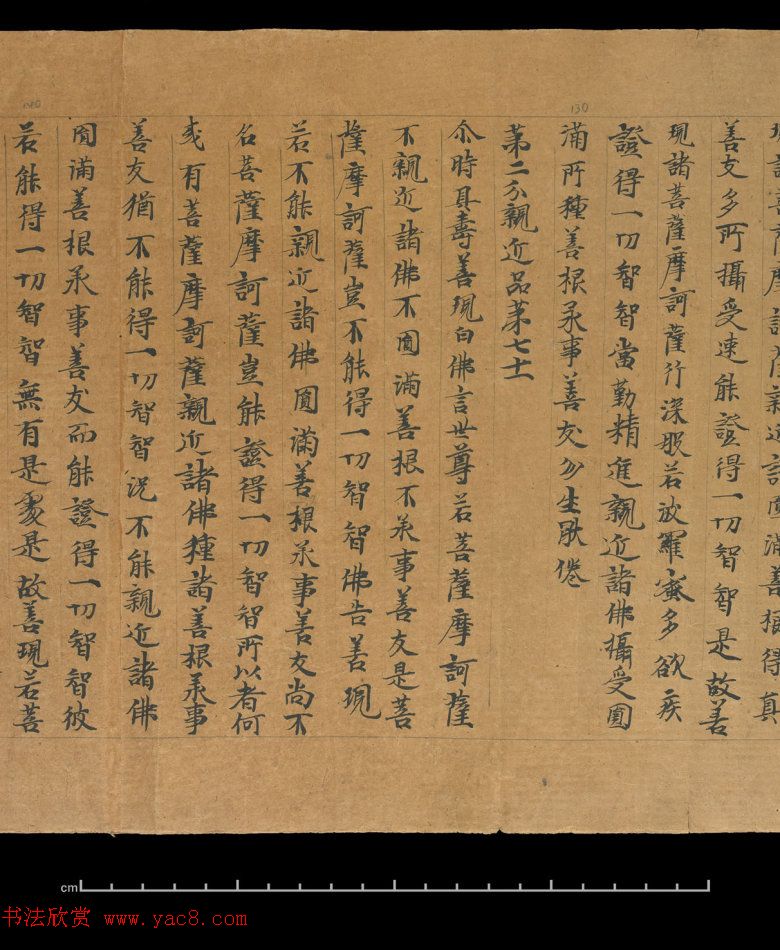 善友多所攝受速能證得一切智智是故善
現諸菩薩摩訶薩行深般若波羅蜜多欲疾
證得一切智智當勤精進親近諸佛攝受圓
滿所種善根承事善友勿生厭倦
第二分親近品第七十一
尒時具壽善現白佛言世尊若菩薩摩訶薩
不親近諸佛不圓滿善根不承事善友是菩
薩摩訶薩豈不能得一切智智佛告善現
若不能親近諸佛圓滿善根承事善友尚不
名菩薩摩訶薩豈能證得一切智智所以者何
或有菩薩摩訶薩親近諸佛種諸善根承事
善友猶不能得一切智智況不能親近諸佛
圓滿善根承事善友而能證得一切智智彼
若能得一切智智無有是處是故善現若菩
130
140
cm
书法欣赏 www.yac8.com